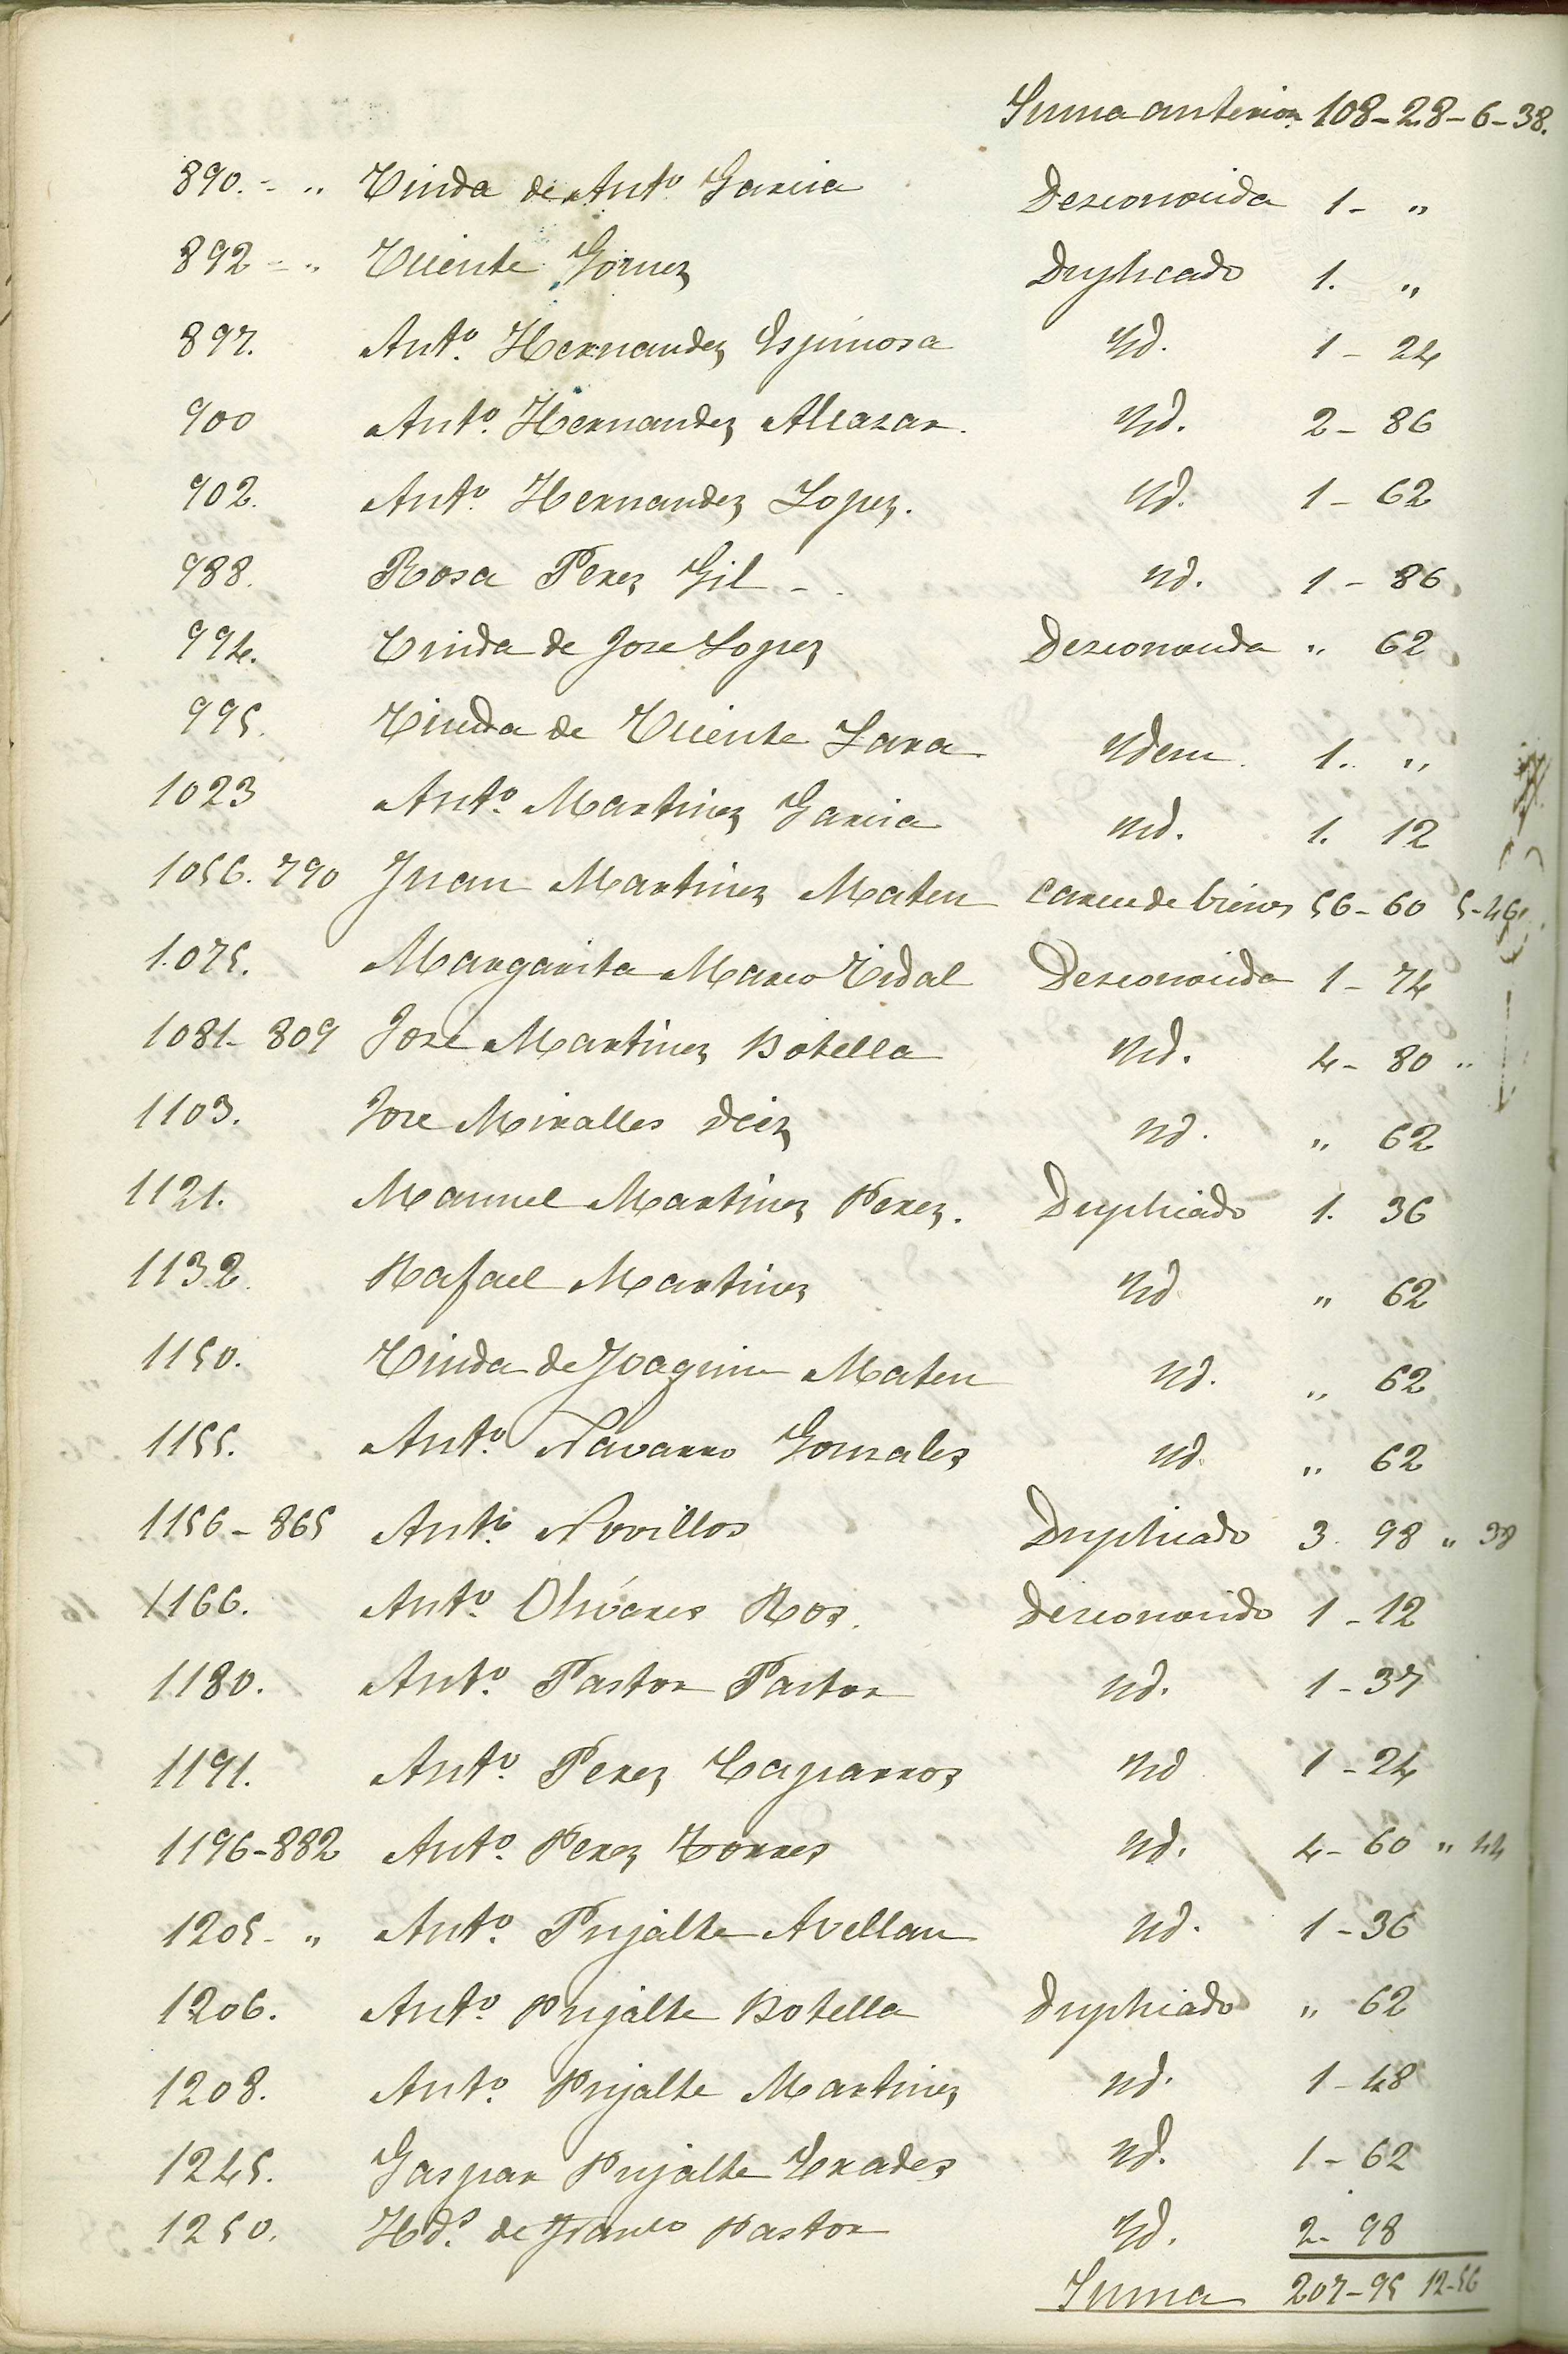 Suma anterior 108-28-6-38.
890.- " Viuda de Antº Garcia Desconocida 1- "
892-" Vicente Gomez Duplicado 1. "
897. Antº Hernandez Espinosa Yd. 1-24
900 Antº Hernandez Alcazar. Yd. 2-86
902. Antº Hernandez Lopez. Yd. 1-62
988. Rosa Perez Gil - Yd. 1-86
994. Viuda de Jose Lopez Desconocida " 62
995. Viuda de Vicente Lara Ydem. 1. "
1023 Antº Martinez Garcia Yd. 1. 12
1056. 790 Juan Martinez Mateu Carece de bienes 56-60 5-46
1.075. Margarita Marco Vidal Desconocida 1-74
1081-809 Jose Martinez Botella Yd. 4-80 "
1103. Jose Miralles Diez Yd. " 62
1121. Manuel Martinez Perez. Duplicado 1. 36
1132. Rafael Martinez Yd " 62
1150. Viuda de Joaquin Mateu Yd. " 62
1155. Antº Navarro Gonzales Yd. " 62
1156-865 Antº Novillos Duplicado 3. 98 " 38
1166. Antº Olivares Ros. Desconocido 1-12
1180. Antº Pastor Pastor Yd. 1-37
1191. Antº Perez Caparros Yd 1-24
1196-882 Antº Perez Torres Yd. 4-60 " 44
1205- " Antº Pujalte Avellan Yd. 1-36
1206. Antº Pujalte Botella Duplicado " 62
1208. Antº Pujalte Martinez Yd. 1-48
1245. Gaspar Pujalte Prades Yd. 1-62
1250. Hdºs de Franco Pastor Yd. 2-98
Suma 207-95 12-56